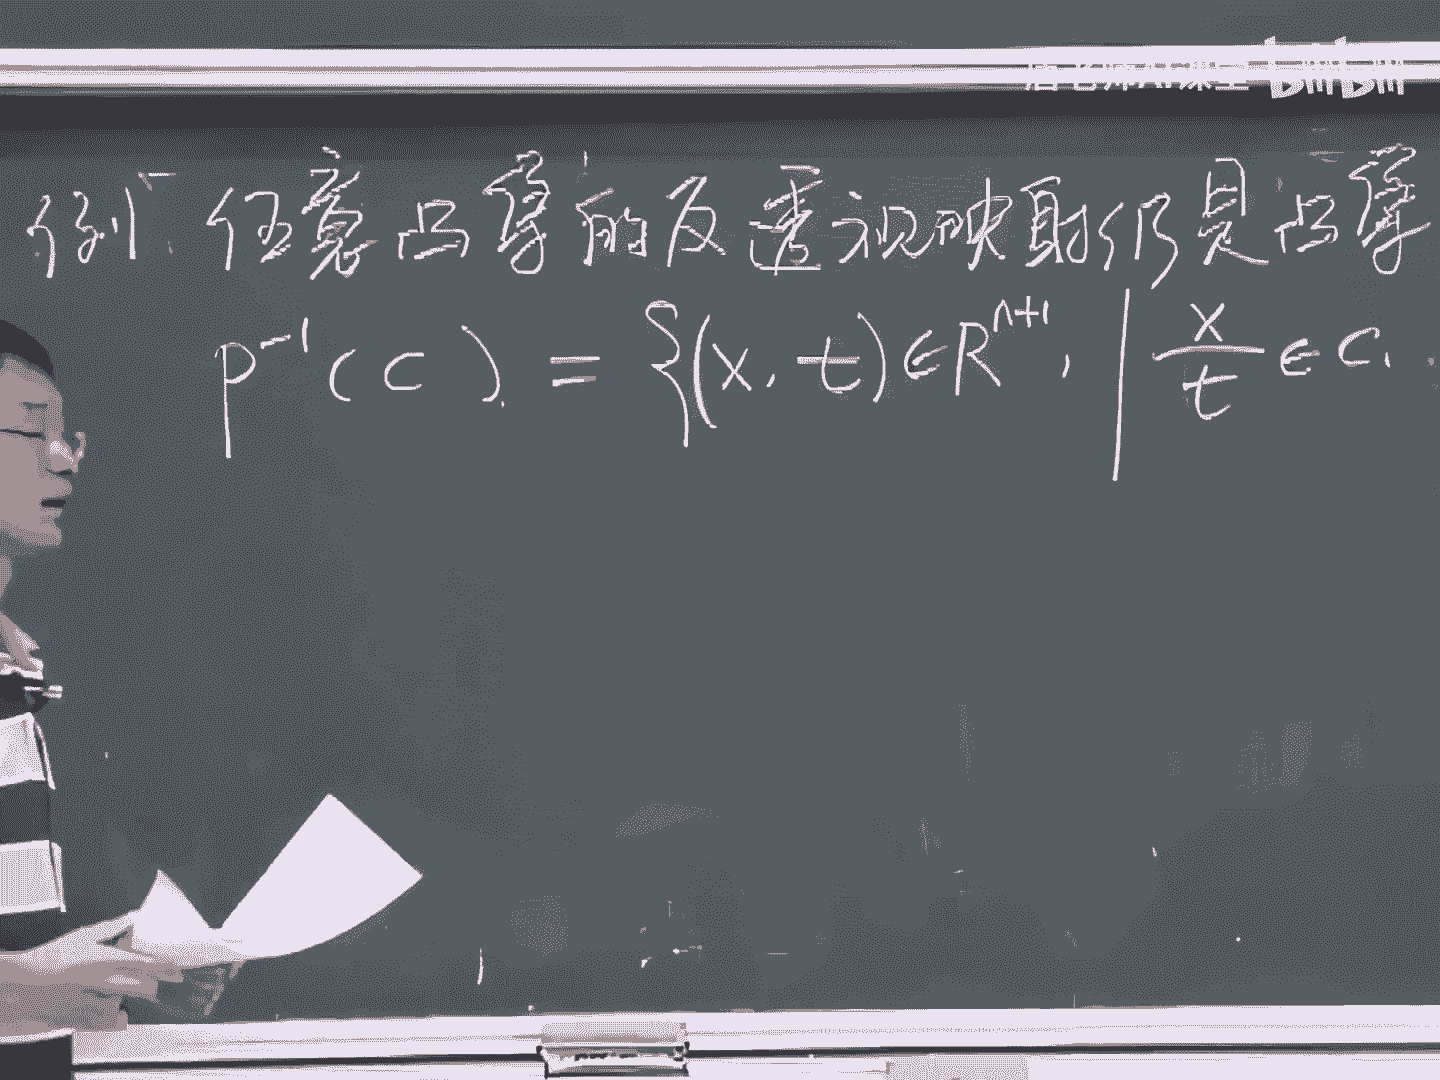 bilibili
例 任意凸集的反透视映射仍是凸集
P⁻¹(C) = {(x, t) ∈ Rⁿ⁺¹, | x/t ∈ C,